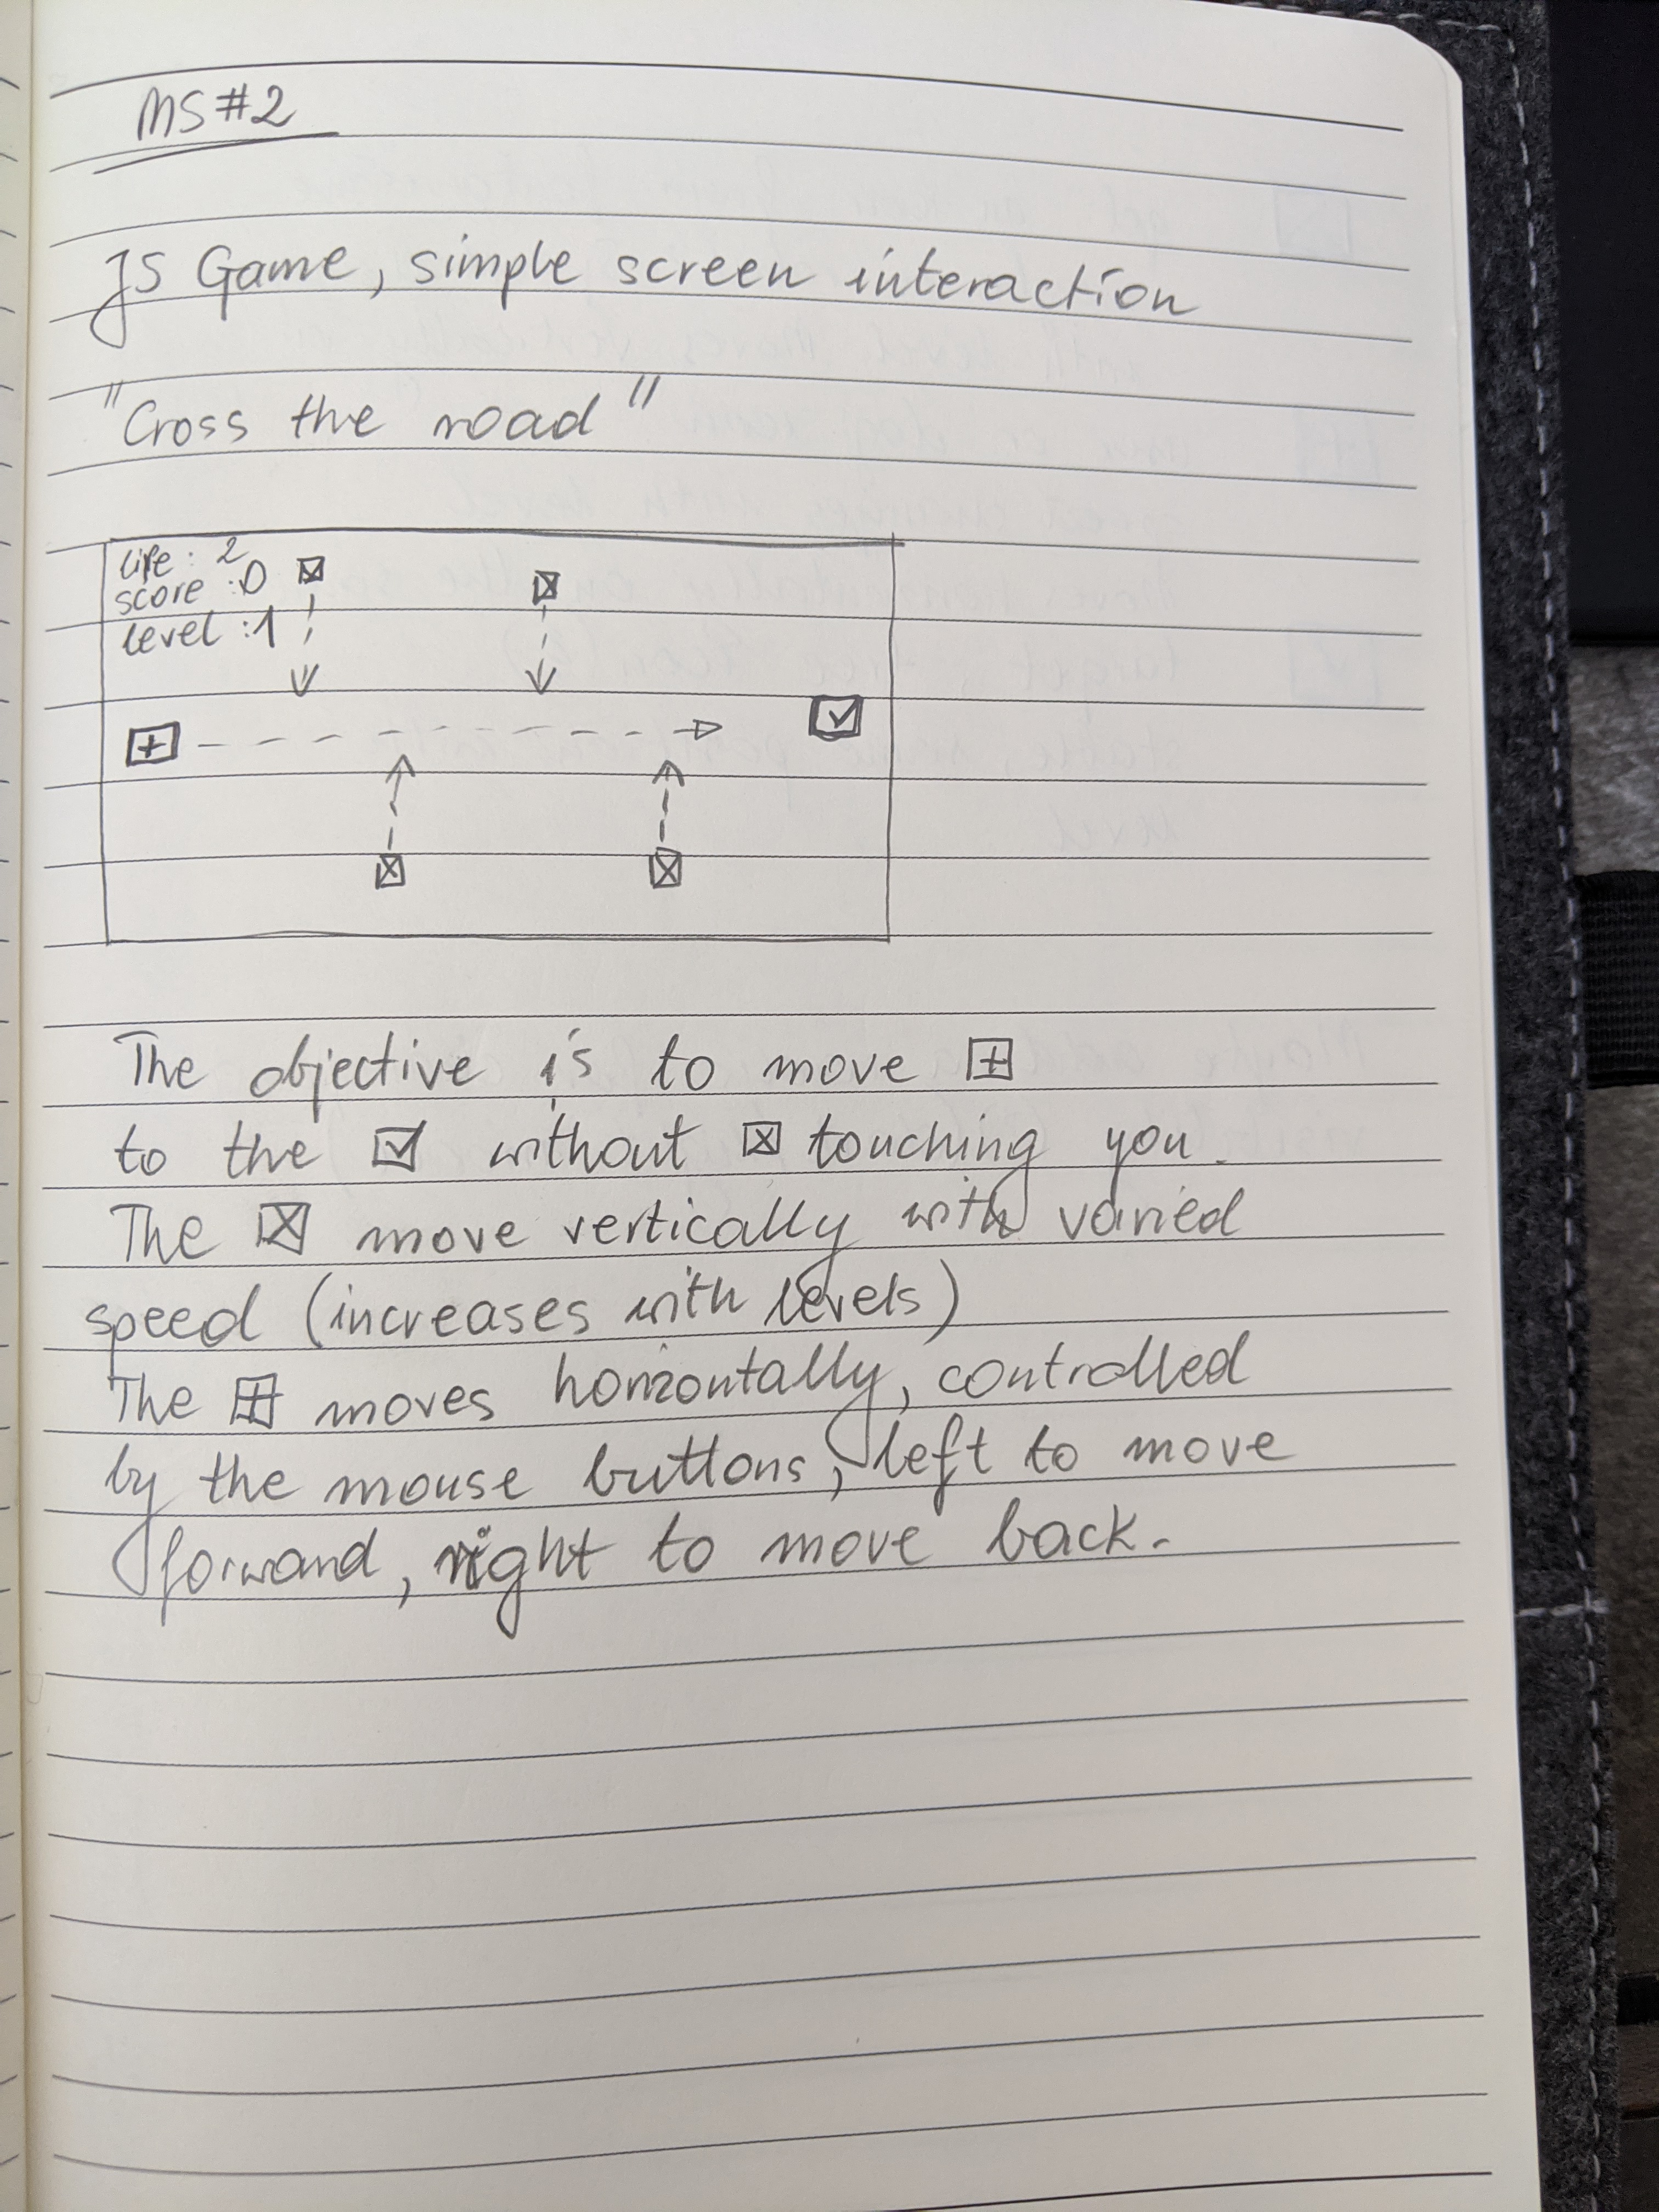 MS#2
JS Game, simple screen interaction
"Cross the road"
life: 2
score: 0
level: 1
The objective is to move ⊞
to the ☑ without ☒ touching you.
The ☒ move vertically with varied
speed (increases with levels)
The ⊞ moves horizontally, controlled
by the mouse buttons, left to move
forward, right to move back.